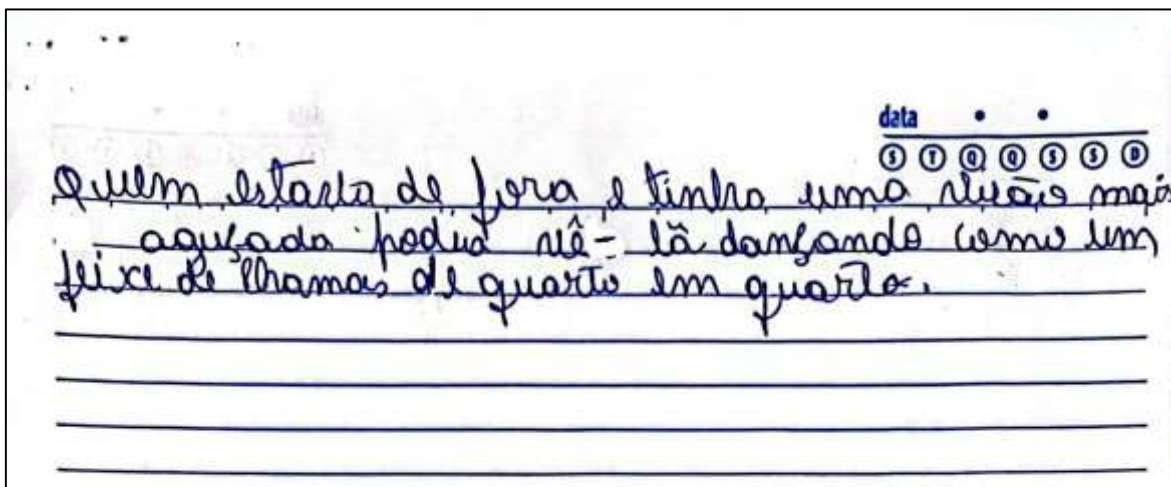 data
S T Q Q S S D
Quem estava de fora e tinha uma visão mais
aguçada podia vê-lã dançando como um
feixe de lhamas de quarto em quarto.